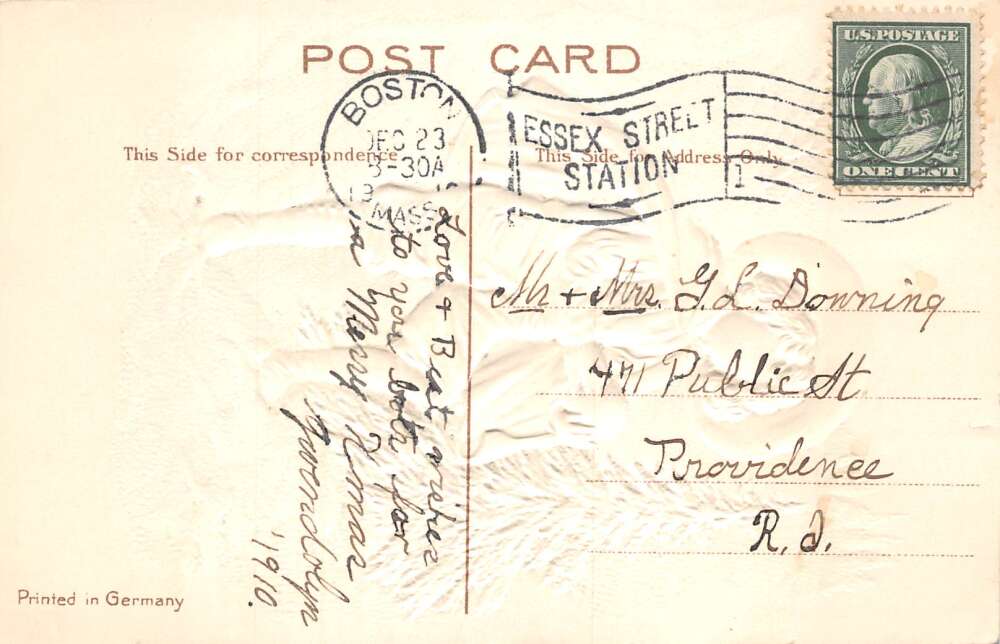 POST CARD
BOSTON
DEC 23
8-30A
MASS
ESSEX STREET
STATION
1
U.S. POSTAGE
ONE CENT
This Side for correspondence
This Side for Address Only
Love + Best wishes
to you both for
a Merry Xmas
Gwendolyn
'1910.
Mr + Mrs. G. L. Downing
471 Public St
Providence
R. I.
Printed in Germany